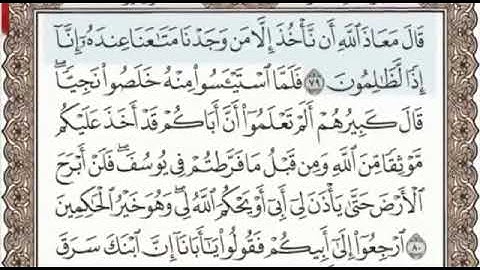 قَالَ مَعَاذَ ٱللَّهِ أَن نَّأۡخُذَ إِلَّا مَن وَجَدۡنَا مَتَٰعَنَا عِندَهُۥٓ إِنَّآ
إِذٗا لَّظَٰلِمُونَ ٧٩ فَلَمَّا ٱسۡتَيۡـَٔسُواْ مِنۡهُ خَلَصُواْ نَجِيّٗاۖ
قَالَ كَبِيرُهُمۡ أَلَمۡ تَعۡلَمُوٓاْ أَنَّ أَبَاكُمۡ قَدۡ أَخَذَ عَلَيۡكُم
مَّوۡثِقٗا مِّنَ ٱللَّهِ وَمِن قَبۡلُ مَا فَرَّطتُمۡ فِي يُوسُفَۖ فَلَنۡ أَبۡرَحَ
ٱلۡأَرۡضَ حَتَّىٰ يَأۡذَنَ لِيٓ أَبِيٓ أَوۡ يَحۡكُمَ ٱللَّهُ لِيۖ وَهُوَ خَيۡرُ ٱلۡحَٰكِمِينَ
٨٠ ٱرۡجِعُوٓاْ إِلَىٰٓ أَبِيكُمۡ فَقُولُواْ يَٰٓأَبَانَآ إِنَّ ٱبۡنَكَ سَرَقَ